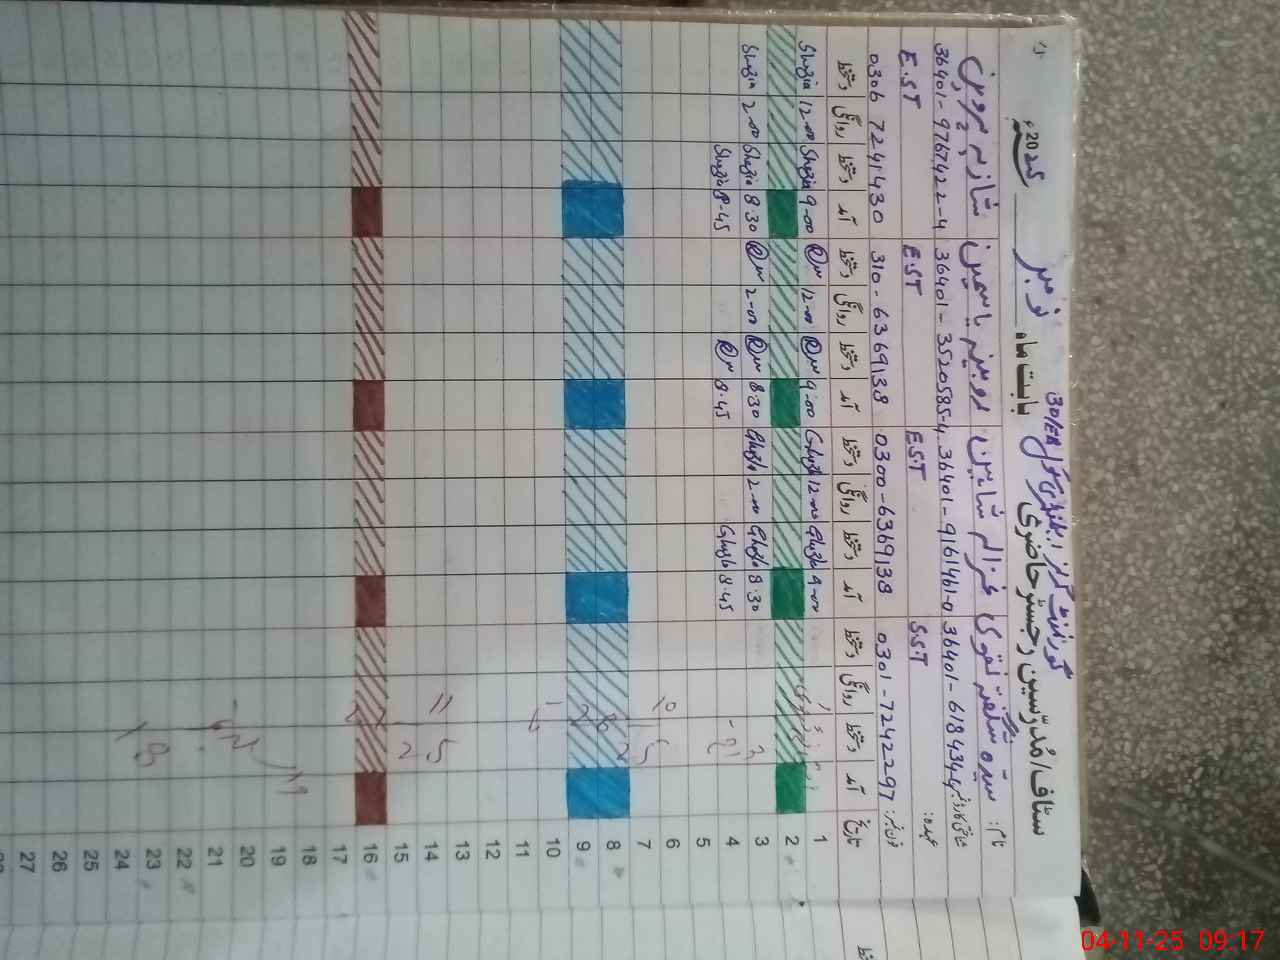 سٹاف / مُدرّسین رجسٹر حاضری گورنمنٹ گرلز ہائی سکول 30/EB بابت ماہ نومبر 2025ء
نام: سیّدہ سلمیٰ نقوی غزالہ شاہین روبینہ یاسمین شازیہ پروین
شناختی کارڈ نمبر: 36401-6184344-4 36401-9161461-0 36401-3520585-4 36401-9767422-4
عہدہ: S.S.T E.S.T E.S.T E.S.T
فون نمبر: 0301-7242297 0300-6369138 310-6369138 0306 7241430
تاریخ آمد دستخط روانگی دستخط آمد دستخط روانگی دستخط آمد دستخط روانگی دستخط آمد دستخط روانگی دستخط
1 9-00 Ghazla 12-00 Ghazla 9-00 12-00 9-00 Shazia 12-00 Shazia
2
3 8-30 Ghazla 2-00 Ghazla 8-30 2-00 8-30 Shazia 2-00 Shazia
4 8-45 Ghazla 8-45 8-45 Shazia
5
6
7
8
9
10
11
12
13
14
15
16
17
18
19
20
21
22
23
24
25
26
27
04-11-25 09:17